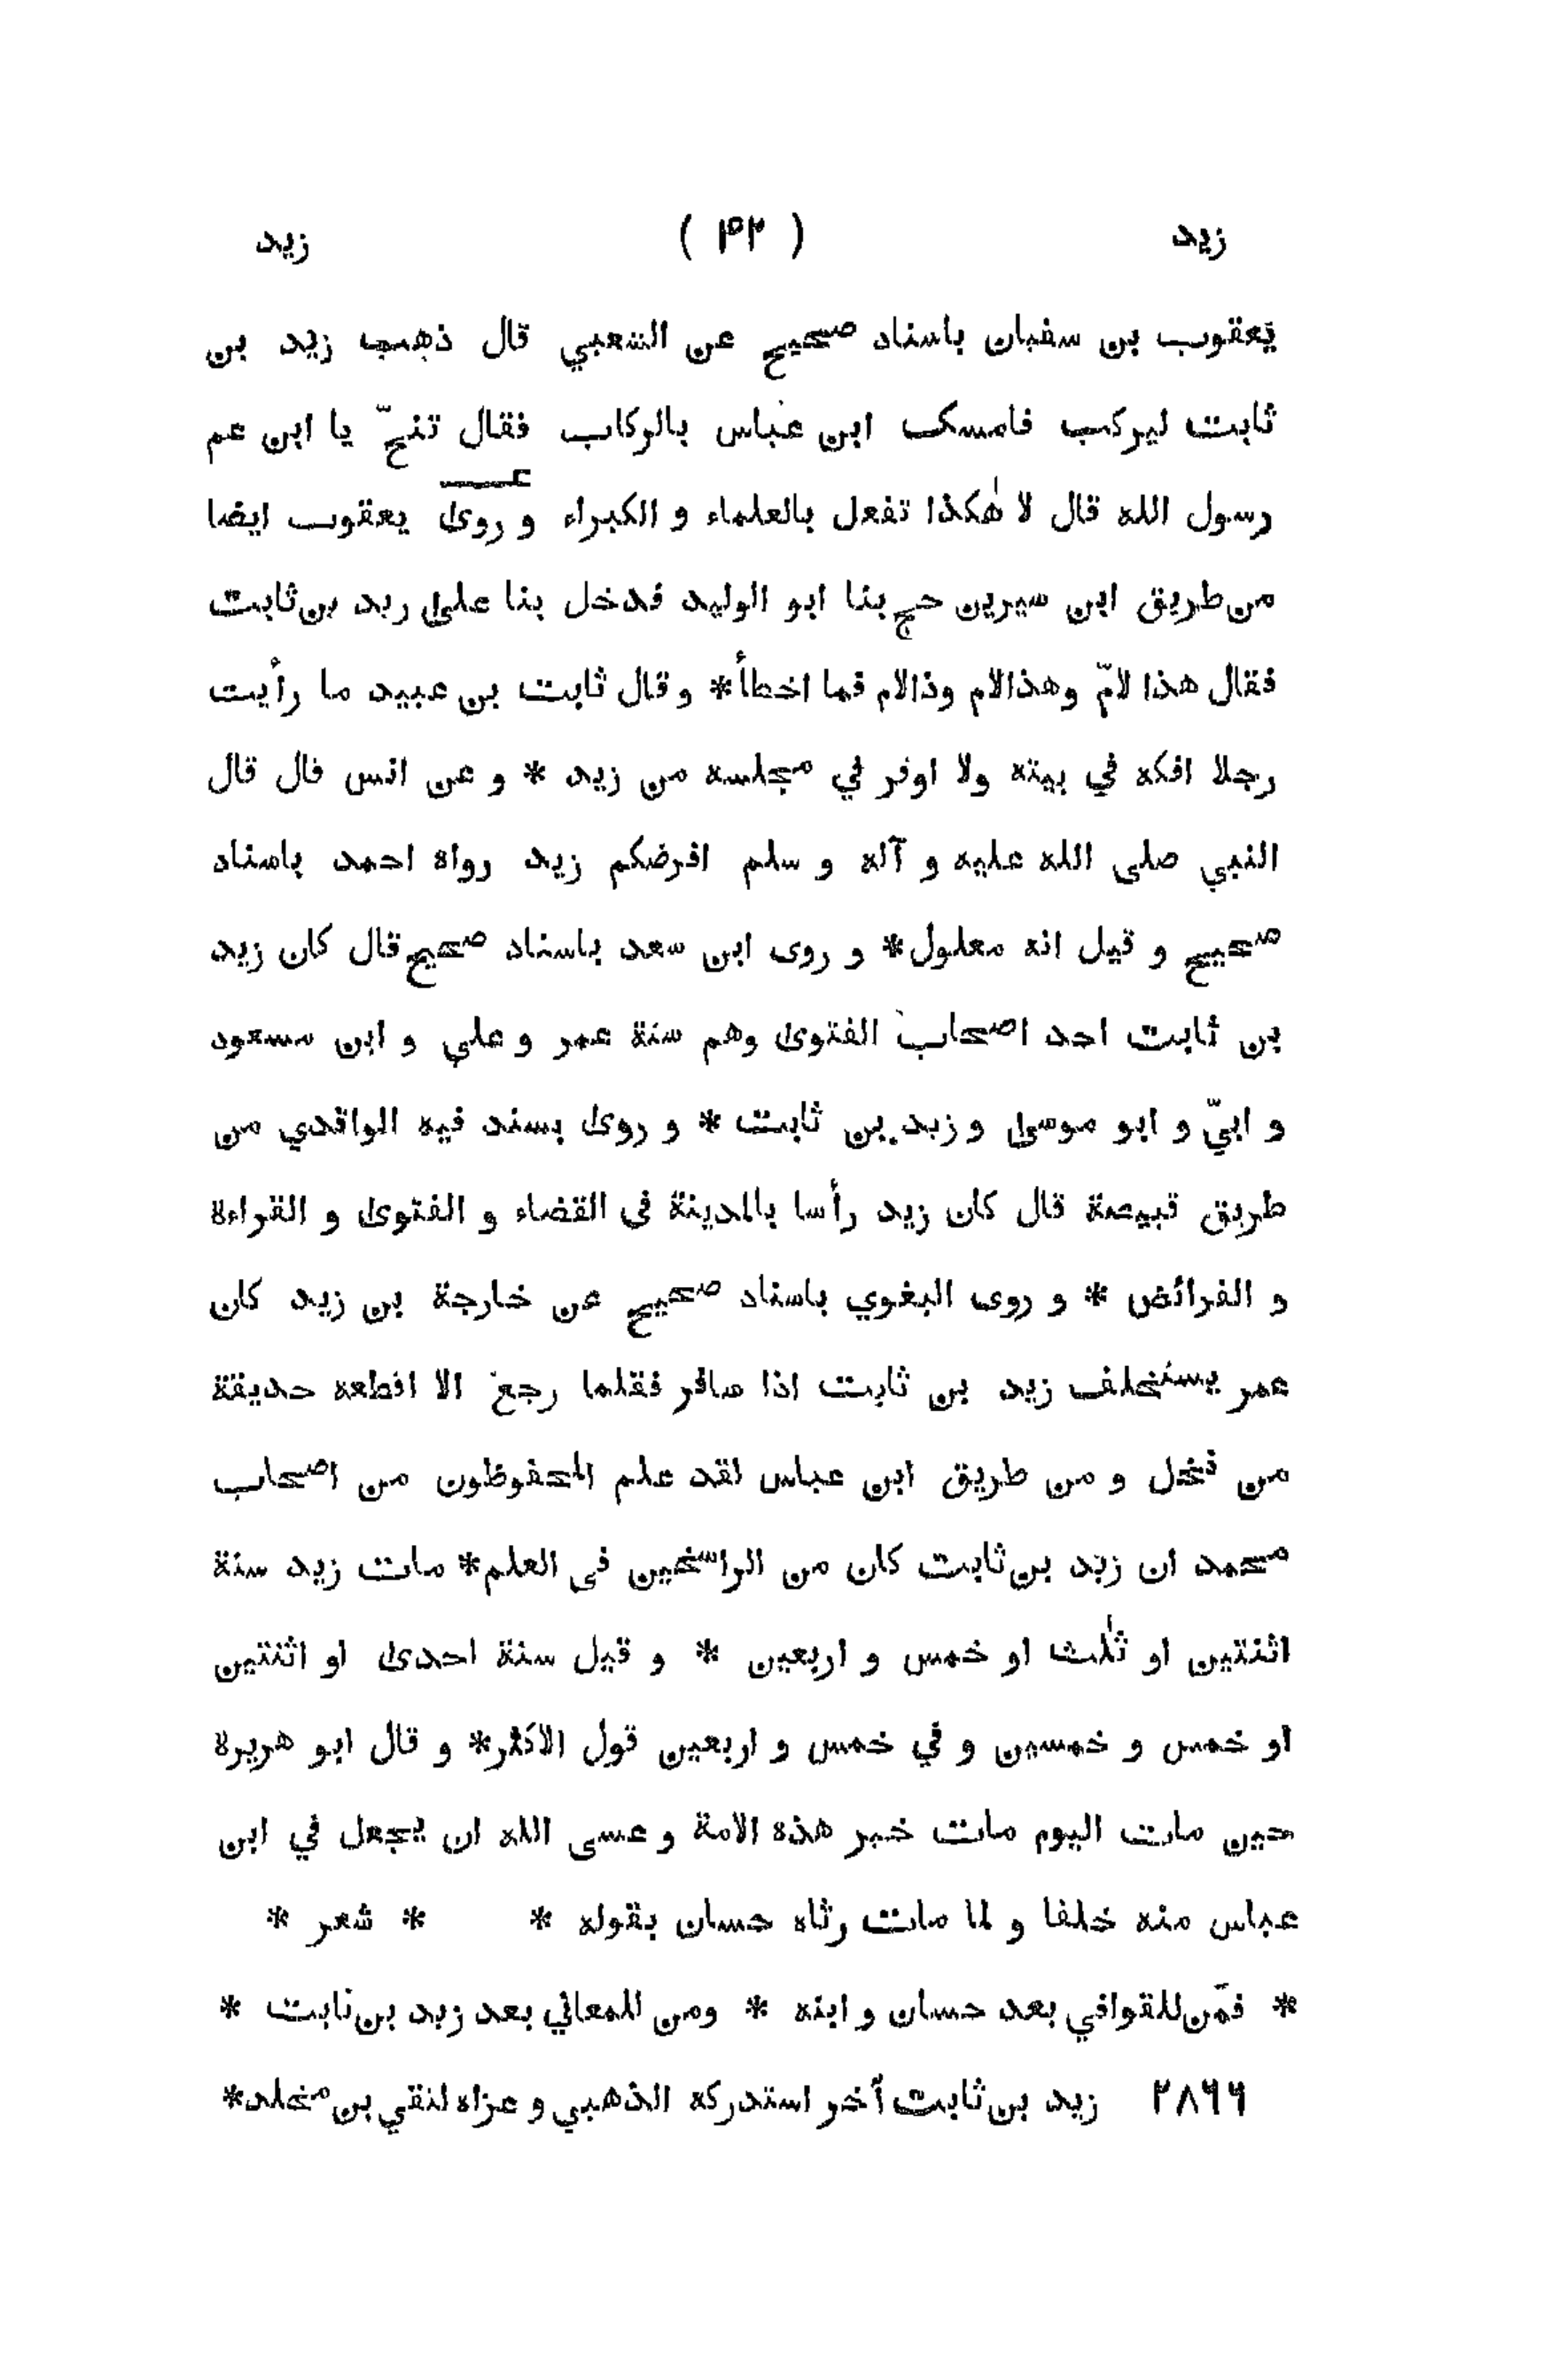 زيد ( ۴۲ ) زيد
يعقوب بن سفيان باسناد صحيح عن الشعبي قال ذهب زيد بن
ثابت ليركب فامسك ابن عباس بالركاب فقال تنحّ يا ابن عم
رسول الله قال لا هٰكذا تفعل بالعلماء و الكبراء و روى يعقوب ايضا
من طريق ابن سيرين حج بنا ابو الوليد فدخل بنا على زيد بن ثابت
فقال هذا لامّ وهذالام وذالام فما اخطأ * و قال ثابت بن عبيد ما رأيت
رجلا افكه في بيته ولا اوفر في مجلسه من زيد * و عن انس قال قال
النبي صلى الله عليه و آله و سلم افرضكم زيد رواه احمد باسناد
صحيح و قيل انه معلول * و روى ابن سعد باسناد صحيح قال كان زيد
بن ثابت احد اصحاب الفتوى وهم ستة عمر و علي و ابن مسعود
و ابيّ و ابو موسى و زيد بن ثابت * و روى بسند فيه الواقدي من
طريق قبيصة قال كان زيد رأسا بالمدينة في القضاء و الفتوى و القراءة
و الفرائض * و روى البغوي باسناد صحيح عن خارجة بن زيد كان
عمر يستخلف زيد بن ثابت اذا سافر فقلما رجع الا اقطعه حديقة
من نخل و من طريق ابن عباس لقد علم المحفوظون من اصحاب
محمد ان زيد بن ثابت كان من الراسخين في العلم * مات زيد سنة
اثنتين او ثلٰث او خمس و اربعين * و قيل سنة احدى او اثنتين
او خمس و خمسين و في خمس و اربعين قول الاكثر * و قال ابو هريرة
حين مات اليوم مات حبر هذه الامة و عسى الله ان يجعل في ابن
عباس منه خلفا و لما مات رثاه حسان بقوله * * شعر *
* فمَن للقوافي بعد حسان و ابنه * ومن للمعاني بعد زيد بن ثابت *
۲۸۶۶ زيد بن ثابت آخر استدركه الذهبي و عزاه لنقي بن مخلد *